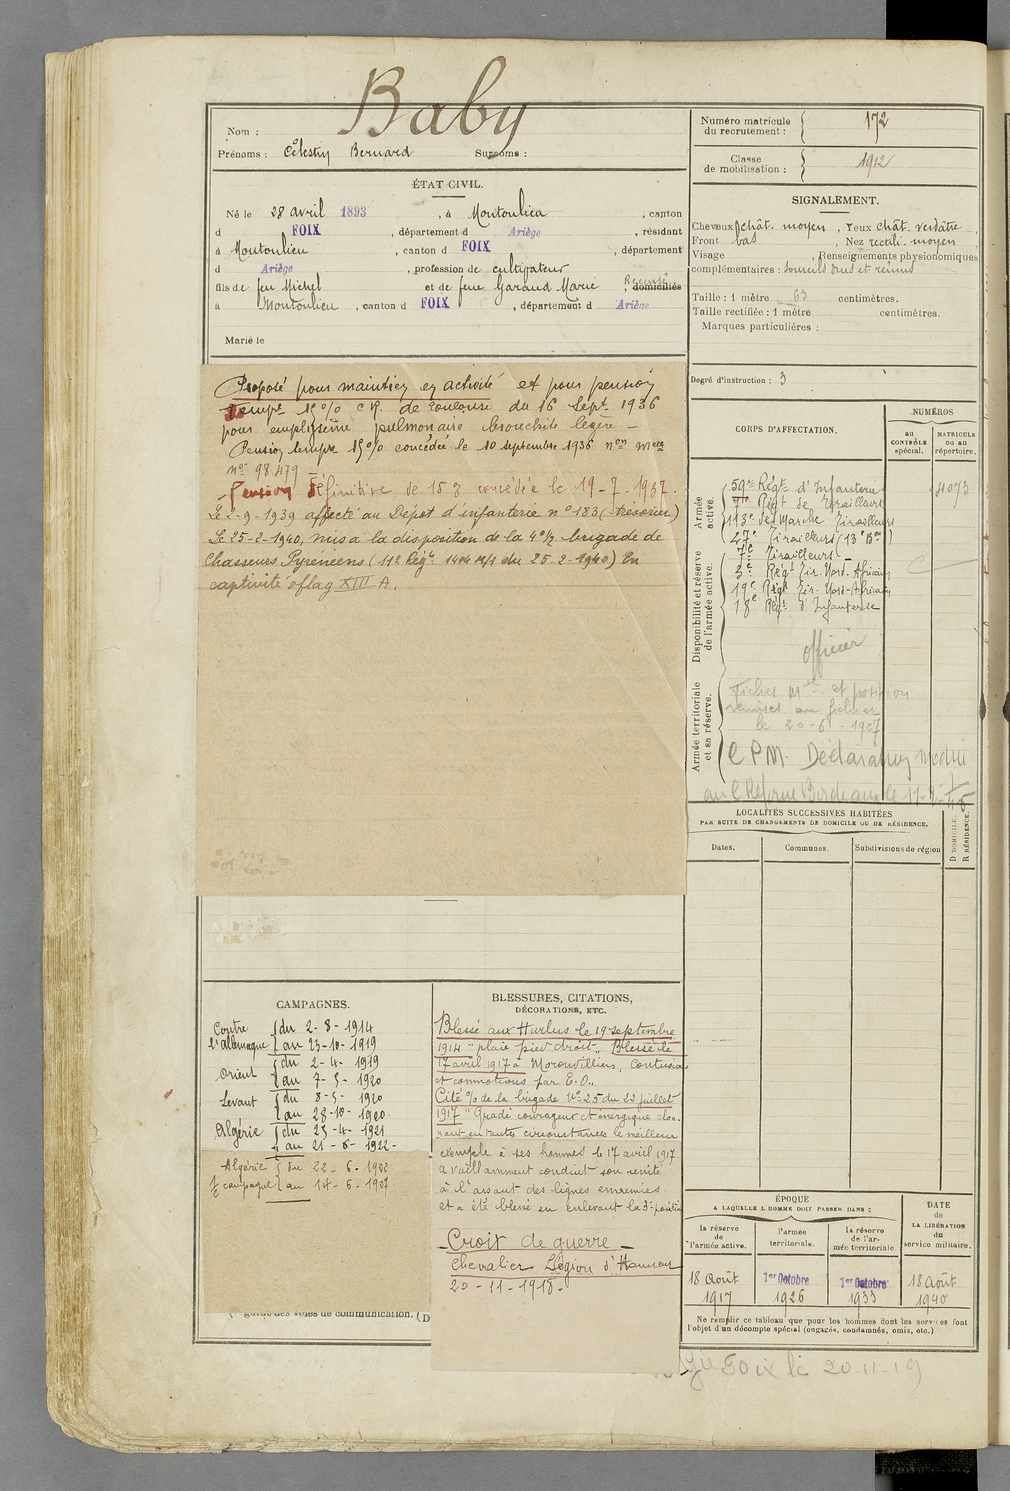 Nom : Baby
Prénoms : Célestin Bernard Surnoms :
Numéro matricule du recrutement : 172
Classe de mobilisation : 1912
ÉTAT CIVIL.
Né le 28 avril 1893, à Montoulieu, canton
d FOIX, département d Ariège, résidant
à Montoulieu, canton d FOIX, département
d Ariège, profession de cultivateur
fils de feu Michel et de feue Garaud Marie, domiciliés
à Montoulieu, canton d FOIX, département d Ariège
Marié le
SIGNALEMENT.
Cheveux chât. moyen, Yeux chât. verdâtre,
Front bas, Nez rectil. moyen
Visage, Renseignements physionomiques
complémentaires : sourcils drus et réunis
Taille : 1 mètre 63 centimètres.
Taille rectifiée : 1 mètre centimètres.
Marques particulières :
Degré d'instruction : 3
Proposé pour maintien en activité et pour pension
tempre 15% C.R. de Toulouse du 16 Sept. 1936
pour emphysème pulmonaire bronchite légère —
Pension tempre 15% concédée le 10 septembre 1936
no 98479
Pension définitive de 15 % concédée le 19-7-1937.
Le 2-9-1939 affecté au Dépot d'infanterie no 183 (trésorier)
Le 25-2-1940, mis à la disposition de la 4e 1/2 brigade de
Chasseurs Pyrénéens (du 25-2-1940) En
captivité oflag XIII A.
CORPS D'AFFECTATION.
NUMÉROS
au CONTRÔLE spécial.
MATRICULE ou au répertoire.
Armée active.
59me Régt d'Infanterie
4073
7e Régt de Tirailleurs
113e de Marche Tirailleurs
47e Tirailleurs (13e Bon)
Disponibilité et réserve de l'armée active.
7e Tirailleurs
3e Régt Tir. Nord. Africain
19e Régt Tir. Nord-Africain
18e Régt d'Infanterie
officier
Armée territoriale et sa réserve.
Fiches mle et position
remises au fichier
le 20-6-1927
C P M. Déclaration modèle
au C Réforme Bordeaux le
LOCALITÉS SUCCESSIVES HABITÉES
PAR SUITE DE CHANGEMENTS DE DOMICILE OU DE RÉSIDENCE.
Dates. Communes. Subdivisions de région
D DOMICILE.
R RÉSIDENCE.
CAMPAGNES.
Contre l'Allemagne du 2-8-1914
au 23-10-1919
Orient du 2-4-1919
au 7-5-1920
Levant du 8-5-1920
au 28-10-1920.
Algérie du 23-4-1921
au 21-6-1922-
Algérie du 22-6-1922
1/2 campagne au 14-6-1927.
garde des voies de communication. (D
BLESSURES, CITATIONS,
DÉCORATIONS, ETC.
Blessé aux Hurlus le 19 septembre
1914 "plaie pied droit". Blessé le
17 avril 1917 à Moronvilliers, Contusions
et commotions par E.O.
Cité % de la brigade No 25 du 22 juillet
1917 "Gradé courageux et énergique don-
nant en toutes circonstances le meilleur
exemple à ses hommes le 17 avril 1917
a vaillamment conduit son unité
à l'assaut des lignes ennemies
et a été blessé en enlevant la 3e position
Croix de guerre
Chevalier Légion d'Honneur
20-11-1918-
ÉPOQUE
A LAQUELLE L'HOMME DOIT PASSER DANS :
la réserve de l'armée active.
l'armée territoriale.
la réserve de l'armée territoriale.
DATE de LA LIBÉRATION du service militaire.
18 Août 1917
1er Octobre 1926
1er Octobre 1933
18 Août 1940
Ne remplir ce tableau que pour les hommes dont les services font
l'objet d'un décompte spécial (engagés, condamnés, omis, etc.)
Foix le 20-11-19